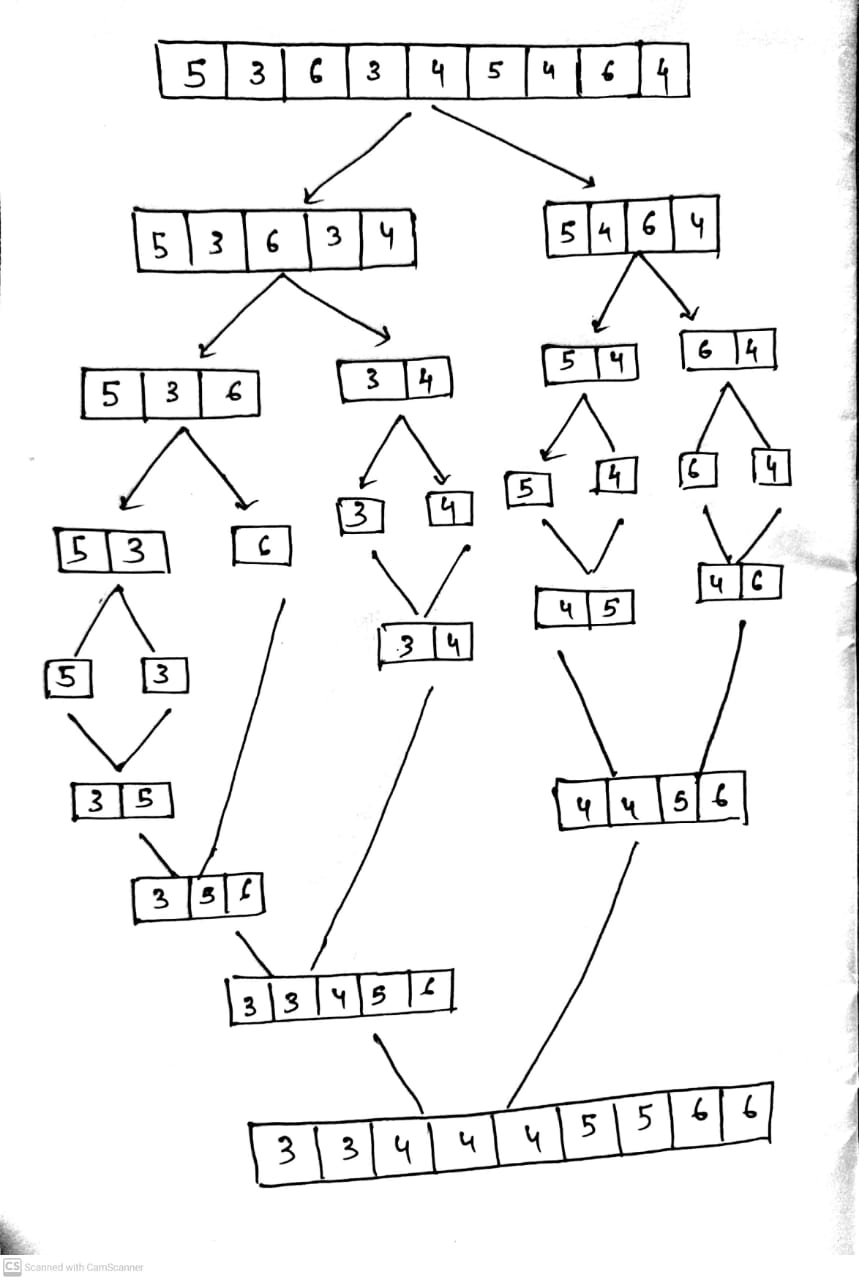 5 3 6 3 4 5 4 6 4
5 3 6 3 4
5 4 6 4
5 3 6
3 4
5 4
6 4
5 3
6
3
4
5
4
6
4
5
3
3 4
4 5
4 6
3 5
4 4 5 6
3 5 6
3 3 4 5 6
3 3 4 4 4 5 5 6 6
CS Scanned with CamScanner